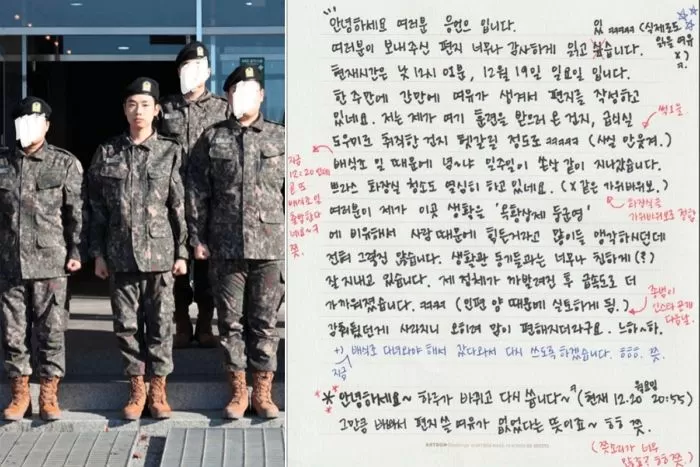 안녕하세요 여러분 응언으 입니다.
있 ㅋㅋㅋㅋㅋ (실제로도 읽을 여유 X) ㅈ.
여러분이 보내주신 편지 너무나 감사하게 읽고 있습니다.
현재시간은 낮 12시 01분, 12월 19일 일요일 입니다.
한 주만에 간만에 여유가 생겨서 편지를 작성하고
있네요. 저는 제가 여기 훈련을 받으러 온 건지, 급식실
썩 드립
도우미로 취직한 건지 헷갈릴 정도로 ㅋㅋㅋㅋㅋ (사실 안 웃겨.)
배식조 일 때문에 녕~냐 일주일이 쏜살 같이 지나갔습니다.
지금 12:20 인데 곧 또 배식조 일 출발한다네요~ㅋ 쯪.
쁘라스 화장실 청소도 열심히 하고 있네요. (X 같은 가위바위보.)
화장실을 가위바위보로 정함
여러분이 제가 이곳 생활을 '옥황상제 둥운영'
에 비유해서 사람 때문에 힘든거라고 많이들 생각하시던데
전혀 그렇진 않습니다. 생활관 동기들과는 너무나 친하게 (?)
잘 지내고 있습니다. 제 정체가 까발려진 후 급속도로 더
가까워졌습니다. ㅋㅋㅋ (인편 양 때문에 실토하게 됨.)
종범이 인스타 관계 다음날.
감춰뒀던게 사라지니 오히려 맘이 편해지더라구요. 느하~하.
+) 지금 배식조 다녀와야 해서 갔다와서 다시 쓰도록 하겠습니다. ㅎㅎㅎ. 쯪.
*안녕하세요~ 하루가 바뀌고 다시 씁니다~ㅋ (현재 12.20 월요일 20:55)
그만큼 바빠서 편지 쓸 여유가 없었다는 뜻이죠~ ㅎㅎ 쯪.
(쯪소리가 너무 많죠? ㅎㅎ 쯪.)